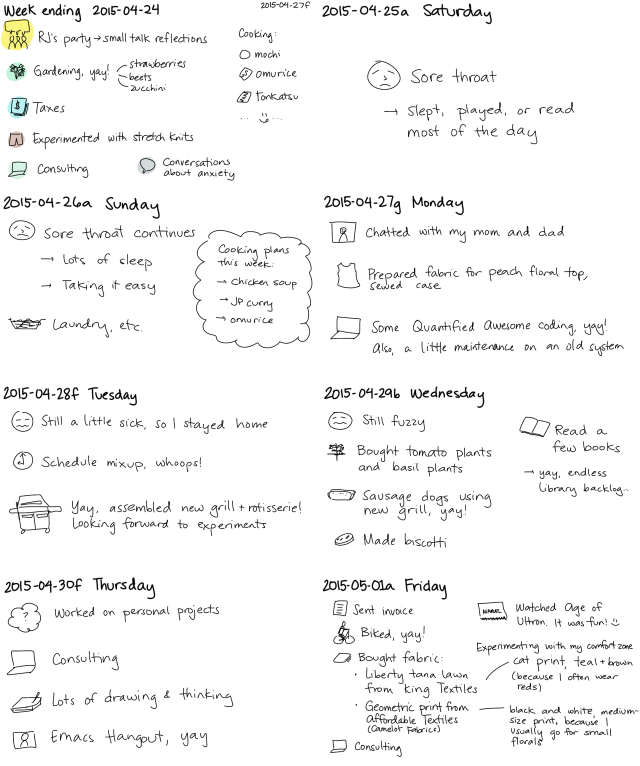 Week ending 2015-04-24
2015-04-27f
RJ's party → small talk reflections
Gardening, yay!
strawberries
beets
zucchini
Taxes
Experimented with stretch knits
Consulting
Conversations
about anxiety
Cooking:
mochi
omurice
tonkatsu
... ...
2015-04-25a Saturday
Sore throat
→ slept, played, or read
most of the day
2015-04-26a Sunday
Sore throat continues
→ Lots of sleep
→ Taking it easy
Laundry, etc.
Cooking plans
this week:
→ Chicken soup
→ JP curry
→ omurice
2015-04-27g Monday
Chatted with my mom and dad
Prepared fabric for peach floral top,
sewed case
Some Quantified Awesome coding, yay!
Also, a little maintenance on an old system
2015-04-28f Tuesday
Still a little sick, so I stayed home
Schedule mixup, whoops!
Yay, assembled new grill + rotisserie!
Looking forward to experiments
2015-04-29b Wednesday
Still fuzzy
Bought tomato plants
and basil plants
Sausage dogs using
new grill, yay!
Made biscotti
Read a
few books
→ yay, endless
library backlog..
2015-04-30f Thursday
?
Worked on personal projects
Consulting
Lots of drawing & thinking
Emacs Hangout, yay
2015-05-01a Friday
Sent invoice
Biked, yay!
Bought fabric:
• Liberty tana lawn
from King Textiles
• Geometric print from
Affordable Textiles
(Camelot Fabrics)
Consulting
MARVEL
Watched Age of
Ultron. It was fun!
Experimenting with my comfort zone
cat print, teal + brown
(because I often wear
reds)
black and white, medium-
size print, because I
usually go for small
florals